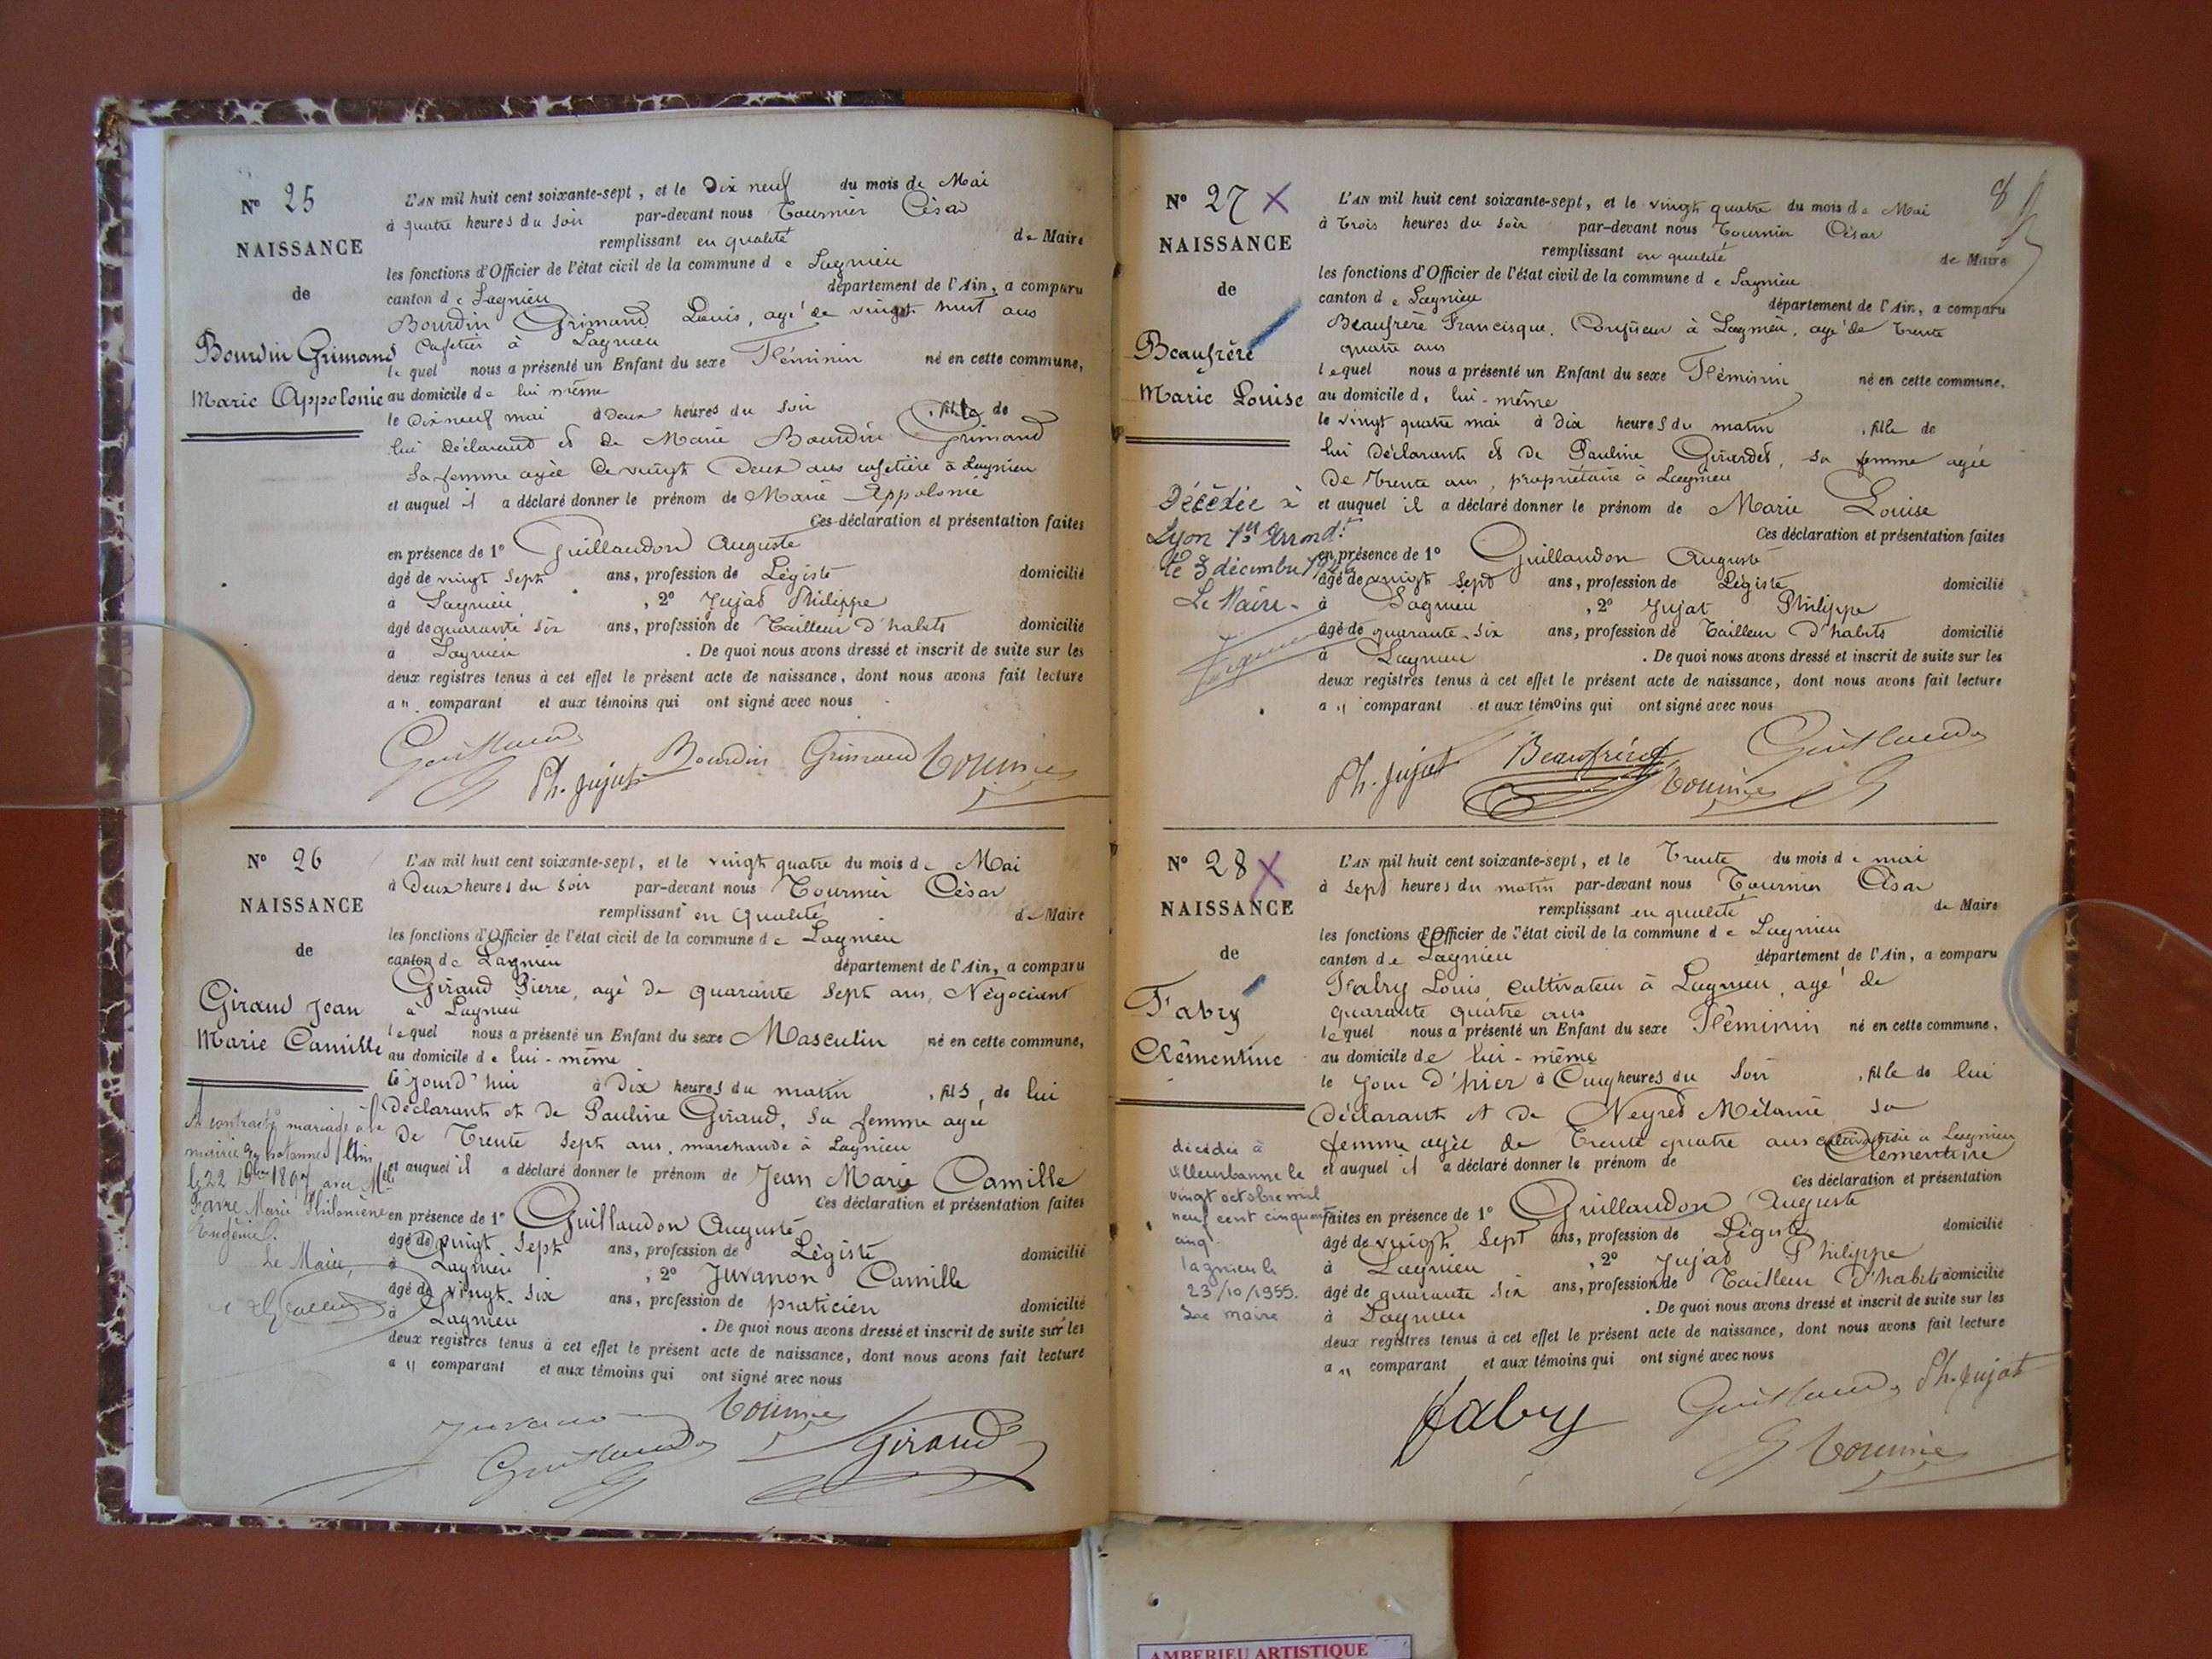 N° 25
NAISSANCE
de
Bourdin Grimand
Marie Appolonie
L'AN mil huit cent soixante-sept, et le Dix neuf du mois de Mai
à quatre heures du Soir par-devant nous Tournier César
remplissant en qualité de Maire
les fonctions d'Officier de l'état civil de la commune de Lagnieu
canton de Lagnieu département de l'Ain, a comparu
Bourdin Grimand Louis, agé de vingt huit ans
Cafetier à Lagnieu
lequel nous a présenté un Enfant du sexe Féminin né en cette commune,
au domicile de lui même
le Dix neuf mai à Deux heures du Soir, fille de
lui déclarant et de Marie Bourdin Grimand
Sa femme agée de vingt Deux ans cafetière à Lagnieu
et auquel il a déclaré donner le prénom de Marie Appolonie
Ces déclaration et présentation faites
en présence de 1° Guillaudon Auguste
âgé de vingt Sept ans, profession de Légiste domicilié
à Lagnieu, 2° Jujat Philippe
âgé de quarante six ans, profession de Tailleur d'habits domicilié
à Lagnieu. De quoi nous avons dressé et inscrit de suite sur les
deux registres tenus à cet effet le présent acte de naissance, dont nous avons fait lecture
a " comparant et aux témoins qui ont signé avec nous
Ph. Jujat Bourdin Grimand Tournier
N° 26
NAISSANCE
de
Giraud Jean
Marie Camille
A contracté mariage à la
mairie
le 22 1897 avec Mlle
Favre Marie Philomène
Eugénie.
Le Maire,
L'AN mil huit cent soixante-sept, et le vingt quatre du mois de Mai
à Deux heures du Soir par-devant nous Tournier César
remplissant en qualité de Maire
les fonctions d'Officier de l'état civil de la commune de Lagnieu
canton de Lagnieu département de l'Ain, a comparu
Giraud Pierre, agé de quarante Sept ans, Négociant
à Lagnieu
lequel nous a présenté un Enfant du sexe Masculin né en cette commune,
au domicile de lui-même
ce jourd'hui à Dix heures du matin, fils de lui
Déclarant et de Pauline Giraud, Sa femme agée
De Trente Sept ans, marchande à Lagnieu
et auquel il a déclaré donner le prénom de Jean Marie Camille
Ces déclaration et présentation faites
en présence de 1° Guillaudon Auguste
âgé de vingt Sept ans, profession de Légiste domicilié
à Lagnieu, 2° Juvanon Camille
âgé de vingt-six ans, profession de praticien domicilié
à Lagnieu. De quoi nous avons dressé et inscrit de suite sur les
deux registres tenus à cet effet le présent acte de naissance, dont nous avons fait lecture
a " comparant et aux témoins qui ont signé avec nous
Juvanon Tournier
Giraud
8
N° 27 X
NAISSANCE
de
Beaufrère
Marie Louise
Décédée à
Lyon 1er Arrondt
le 3 décembre
Le Maire
L'AN mil huit cent soixante-sept, et le vingt quatre du mois de Mai
à Trois heures du Soir par-devant nous Tournier César
remplissant en qualité de Maire
les fonctions d'Officier de l'état civil de la commune de Lagnieu
canton de Lagnieu département de l'Ain, a comparu
Beaufrère Francisque, Confiseur à Lagnieu, agé de Trente
quatre ans
lequel nous a présenté un Enfant du sexe Féminin né en cette commune,
au domicile de lui-même
le vingt quatre mai à dix heures du matin, fille de
lui Déclarant et de Pauline Girardet, sa femme agée
De Trente ans, propriétaire à Lagnieu
et auquel il a déclaré donner le prénom de Marie Louise
Ces déclaration et présentation faites
en présence de 1° Guillaudon Auguste
âgé de vingt Sept ans, profession de Légiste domicilié
à Lagnieu, 2° Jujat Philippe
âgé de quarante-six ans, profession de Tailleur d'habits domicilié
à Lagnieu. De quoi nous avons dressé et inscrit de suite sur les
deux registres tenus à cet effet le présent acte de naissance, dont nous avons fait lecture
a " comparant et aux témoins qui ont signé avec nous
Ph. Jujat Beaufrère Tournier
N° 28 X
NAISSANCE
de
Fabry
Clémentine
décédée à
Villeurbanne le
vingt octobre mil
neuf cent cinquante
cinq.
Lagnieu le
23/10/1955.
Le maire
L'AN mil huit cent soixante-sept, et le Trente du mois de mai
à Sept heures du matin par-devant nous Tournier César
remplissant en qualité de Maire
les fonctions d'Officier de l'état civil de la commune de Lagnieu
canton de Lagnieu département de l'Ain, a comparu
Fabry Louis, cultivateur à Lagnieu, agé de
quarante quatre ans
lequel nous a présenté un Enfant du sexe Féminin né en cette commune,
au domicile de lui-même
le Jour d'hier à Cinq heures du Soir, fille de lui
Déclarant et de Neyret Mélanie sa
femme agée de Trente quatre ans cultivatrice à Lagnieu
et auquel il a déclaré donner le prénom de Clémentine
Ces déclaration et présentation
faites en présence de 1° Guillaudon Auguste
âgé de vingt Sept ans, profession de Légiste domicilié
à Lagnieu, 2° Jujat Philippe
âgé de quarante six ans, profession de Tailleur d'habits domicilié
à Lagnieu. De quoi nous avons dressé et inscrit de suite sur les
deux registres tenus à cet effet le présent acte de naissance, dont nous avons fait lecture
a " comparant et aux témoins qui ont signé avec nous
Fabry Ph. Jujat
Tournier
AMBERIEU ARTISTIQUE